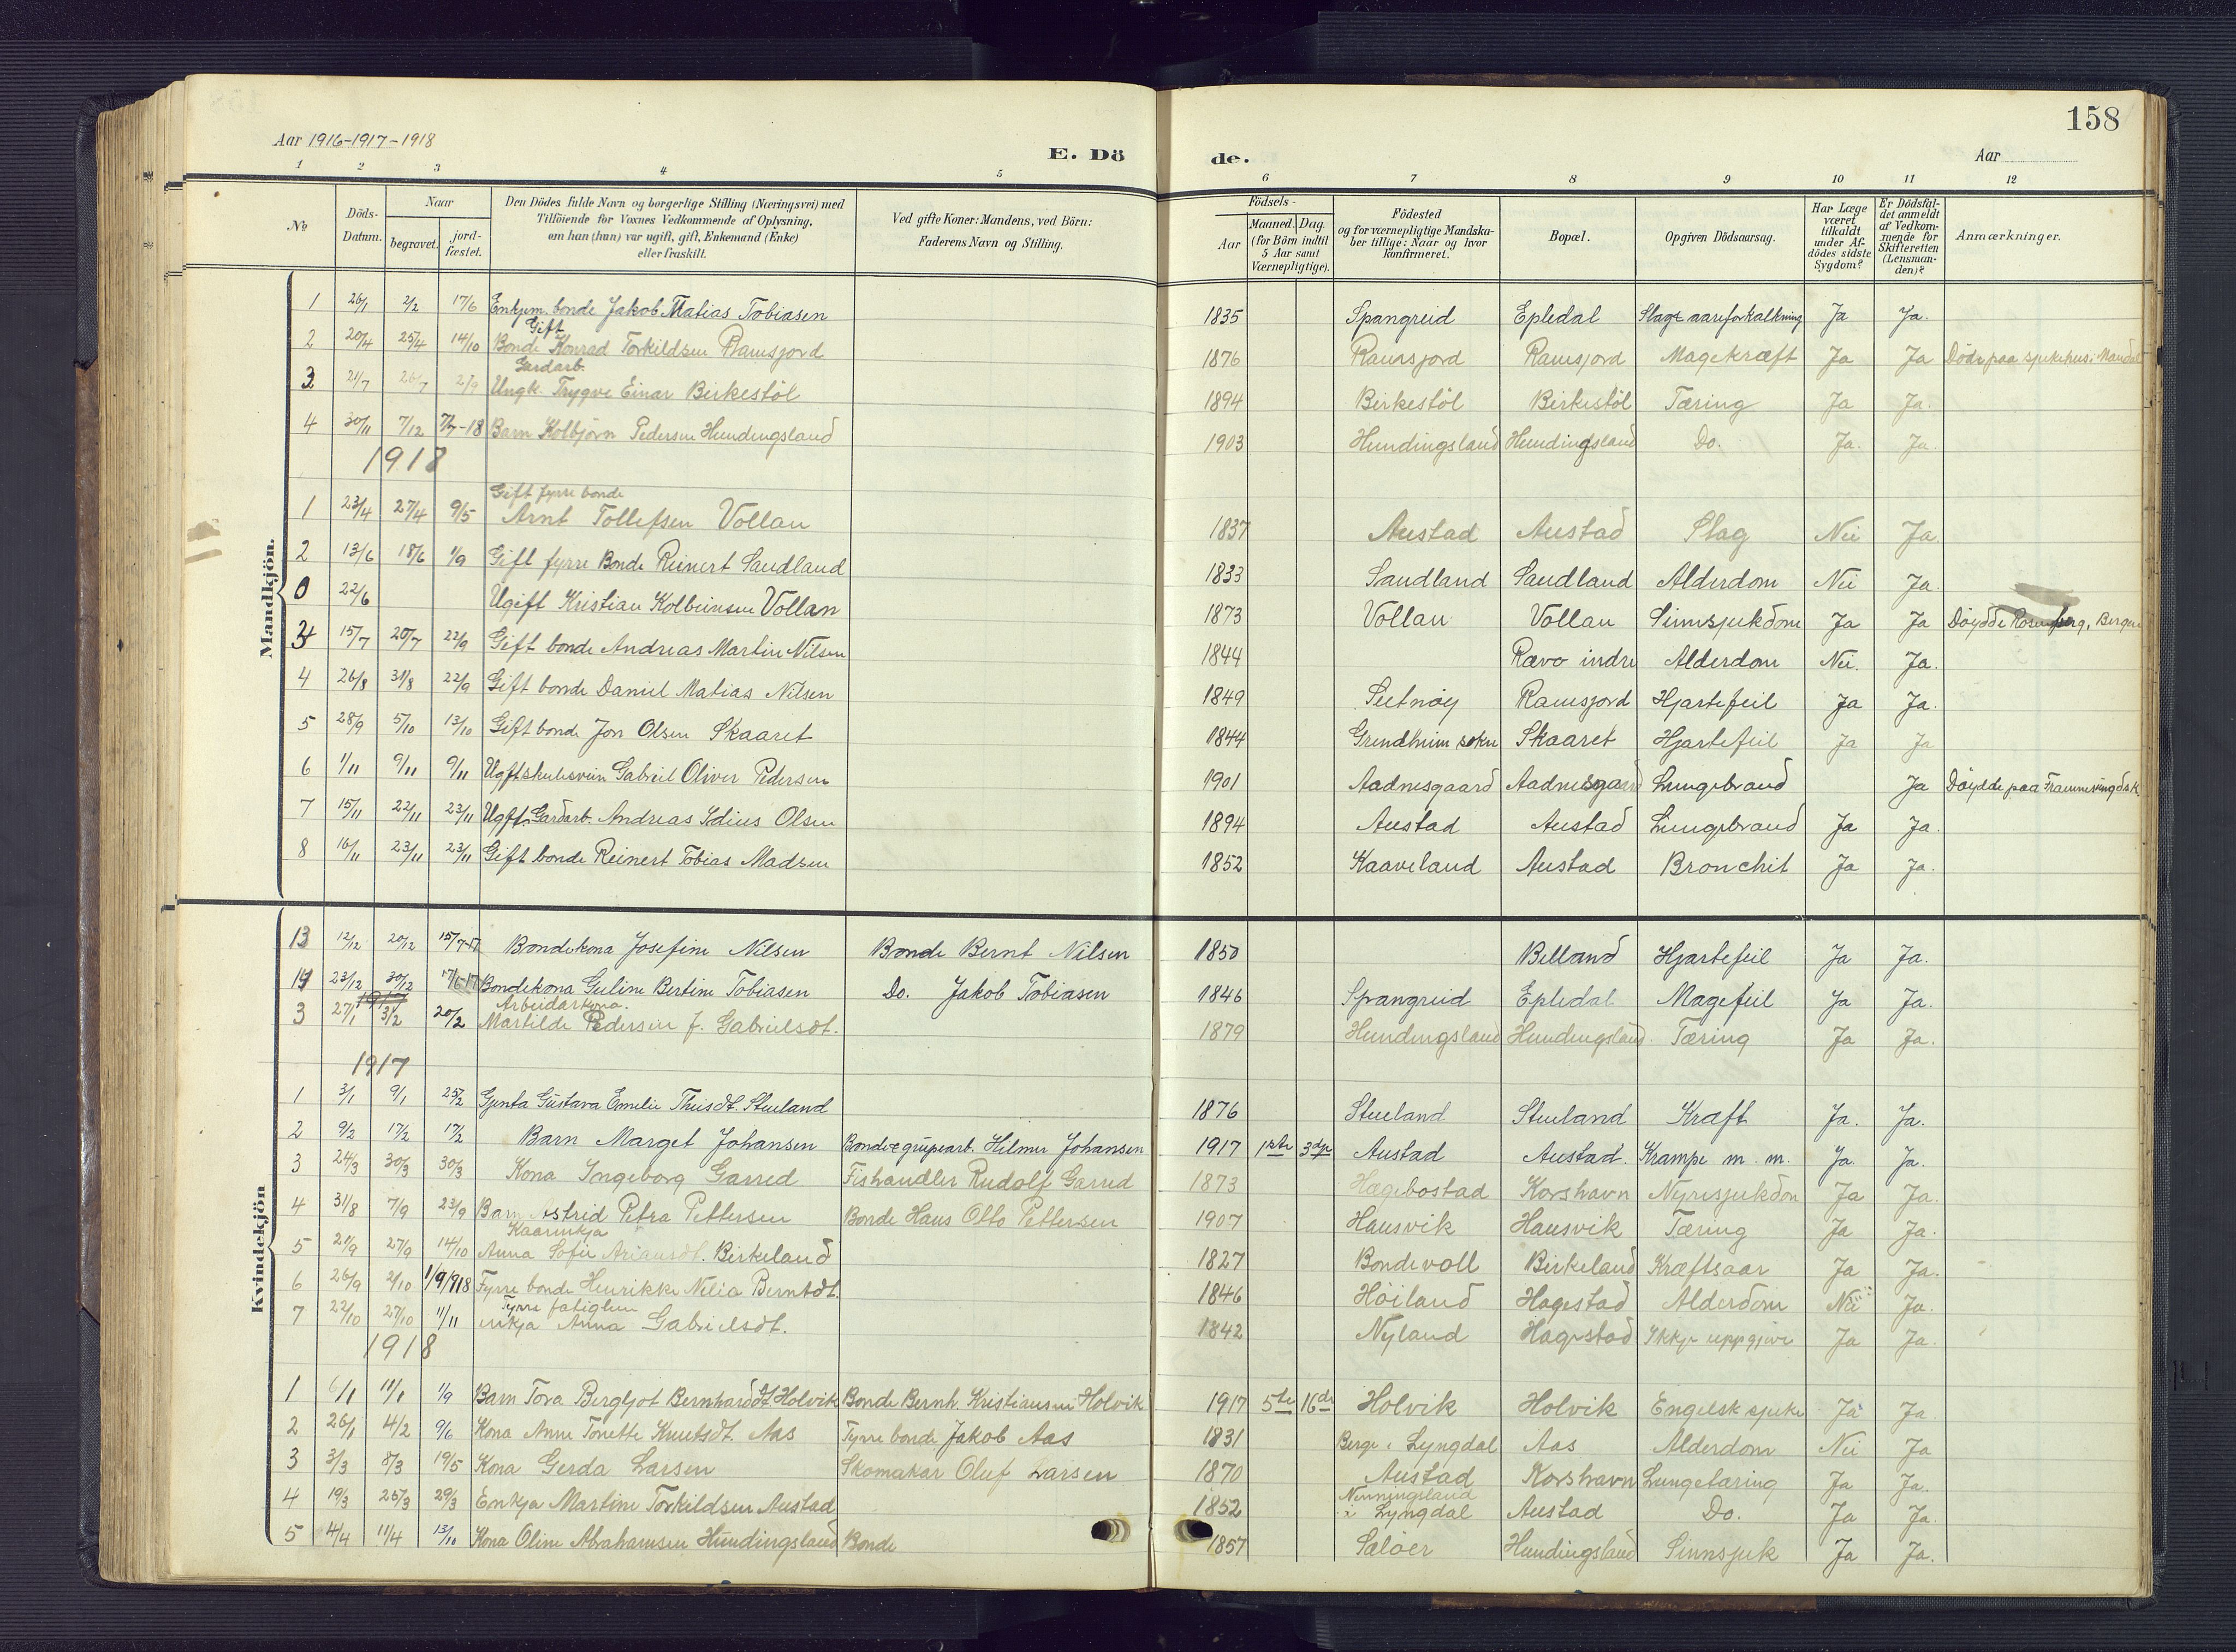 158
Aar 1916-1917-1918
E. Dö de.
Aar
1 2 3 4 5 6 7 8 9 10 11 12
No
Döds-Datum.
Naar
begravet.
jord-fæstet.
Den Dödes fulde Navn og borgerlige Stilling (Næringsvei) med
Tilföiende for Voxnes Vedkommende af Oplysning,
om han (hun) var ugift, gift, Enkemand (Enke)
eller fraskilt.
Ved gifte Koner: Mandens, ved Börn:
Faderens Navn og Stilling.
Födsels-
Aar
Maaned. Dag.
(for Börn indtil
5 Aar samt
Værnepligtige).
Födested
og for værnepligtige Mandska-
ber tillige: Naar og hvor
konfirmeret.
Bopæl.
Opgiven Dödsaarsag.
Har Læge
været
tilkaldt
under Af-
dödes sidste
Sygdom?
Er Dödsfal-
det anmeldt
af Vedkom-
mende for
Skifteretten
(Lensman-
den)?
Anmærkninger.
Mandkjön.
1 26/1 2/2 17/6 Enkjem. bonde Jakob Matias Tobiasen 1835 Spangreid Epledal Slag aareforkalkning Ja Ja.
Gift
2 20/4 25/4 14/10 Bonde Konrad Torkildsen Ramsjord 1876 Ramsjord Ramsjord Magekræft Ja Ja Döde paa sjukehus i Mandal
Gardarb.
3 21/7 26/7 2/9 Ungk. Trygve Einar Birkestöl 1894 Birkestöl Birkestöl Tæring Ja Ja.
4 30/11 7/12 7/7-18 Barn Kolbjörn Pedersen Hundingsland 1903 Hundingsland Hundingsland Do. Ja. Ja.
1918
Gift fyrre bonde
1 23/4 27/4 9/5 Arnt Tollefsen Vollan 1837 Austad Austad Slag Nei Ja.
2 13/6 18/6 1/9 Gift fyrre Bonde Reinert Sandland 1833 Sandland Sandland Alderdom Nei Ja.
0 22/6 Ugift Kristian Kolbeinsen Vollan 1873 Vollan Vollan Sinnsjukdom Ja Ja Döydde Rosenberg, Bergen
3 15/7 20/7 22/9 Gift bonde Andreas Martin Nilsen 1844 Rævo indre Alderdom Nei. Ja.
4 26/8 31/8 22/9 Gift bonde Daniel Matias Nilsen 1849 Seelnöy Ramsjord Hjartefeil Ja Ja.
5 28/9 5/10 13/10 Gift bonde Jon Olsen Skaaret 1844 Grendheim sokn Skaaret Hjartefeil Ja Ja
6 1/11 9/11 9/11 Ugift skulesvein Gabriel Oliver Pedersen 1901 Aadnesgaard Aadnesgaard Lungebrand Ja Döydde paa Framnesungdsk.
7 15/11 22/11 23/11 Ugift Gardarb. Andreas Edius Olsen 1894 Austad Austad Lungebrand Ja Ja.
8 16/11 23/11 23/11 Gift bonde Reinert Tobias Madsen 1852 Kaaveland Austad Bronchit Ja Ja.
Kvindekjön
13 12/12 20/12 15/7-17 Bondekona Josefine Nilsen Bonde Bernt Nilsen 1850 Belland Hjartefeil Ja Ja.
14 23/12 30/12 17/6-17 Bondekona Guline Bertine Tobiasen Do. Jakob Tobiasen 1846 Spangreid Epledal Magefeil Ja Ja.
1917 Arbeidarkona.
3 27/1 3/2 20/2 Martilde Pedersen f. Gabrielsdt. 1879 Hundingsland Hundingsland Tæring Ja Ja.
1917
1 3/1 9/1 25/2 Gjenta Gustava Emelie Thisdt. Steeland 1876 Steeland Steeland Kræft Ja. Ja.
2 9/2 17/2 17/2 Barn Marget Johansen Bonde e grupearb. Hilmer Johansen 1917 1ste 3dje Austad Austad. Krampe m. m. Ja. Ja.
3 24/3 30/3 30/3 Kona Ingeborg Garred Fiskhandler Rudolf Garred 1873 Hægebostad Korshavn Nyresjukdom Ja Ja.
4 31/8 7/9 23/9 Barn Astrid Petra Pettersen Bonde Hans Otto Pettersen 1907 Hausvik Hausvik Tæring Ja Ja.
Kaarenkja
5 21/9 27/9 14/10 Anna Sofie Ariansdt. Birkeland 1827 Bondevoll Birkeland Kræftsaar Ja Ja.
6 26/9 2/10 1/9/1918 Fyrre bonde Henrikke Nilia Berntdt. 1846 Höiland Hagestad Alderdom Nei Ja.
Fyrre fatiglem
7 22/10 27/10 1/11 enkja Anna Gabrielsdt. 1842 Nyland Hagestad Ikkje uppgjeve Ja Ja.
1918
1 6/1 11/1 1/9 Barn Tora Bergljot Bernharddt Holvik Bonde Bernh. Kristiansen Holvik 1917 5te 16de Holvik Holvik Engelsk sjuke Ja Ja
2 26/1 4/2 9/6 Kona Anne Tonette Knutsdt. Aas Fyrre bonde Jakob Aas 1831 Berge i Lyngdal Aas Alderdom Nei Ja
3 3/3 8/3 19/5 Kona Gerda Larsen Skomakar Oluf Larsen 1870 Austad Korshavn Lungetæring Ja Ja.
4 19/3 25/3 29/3 Enkja Martine Torkildsen Austad 1852 Nenningsland i Lyngdal Austad Do. Ja Ja.
5 4/4 11/4 13/10 Kona Oline Abrahamsen Hundingsland Bonde 1857 Salöer Hundingsland Sinnsjuk Ja Ja.